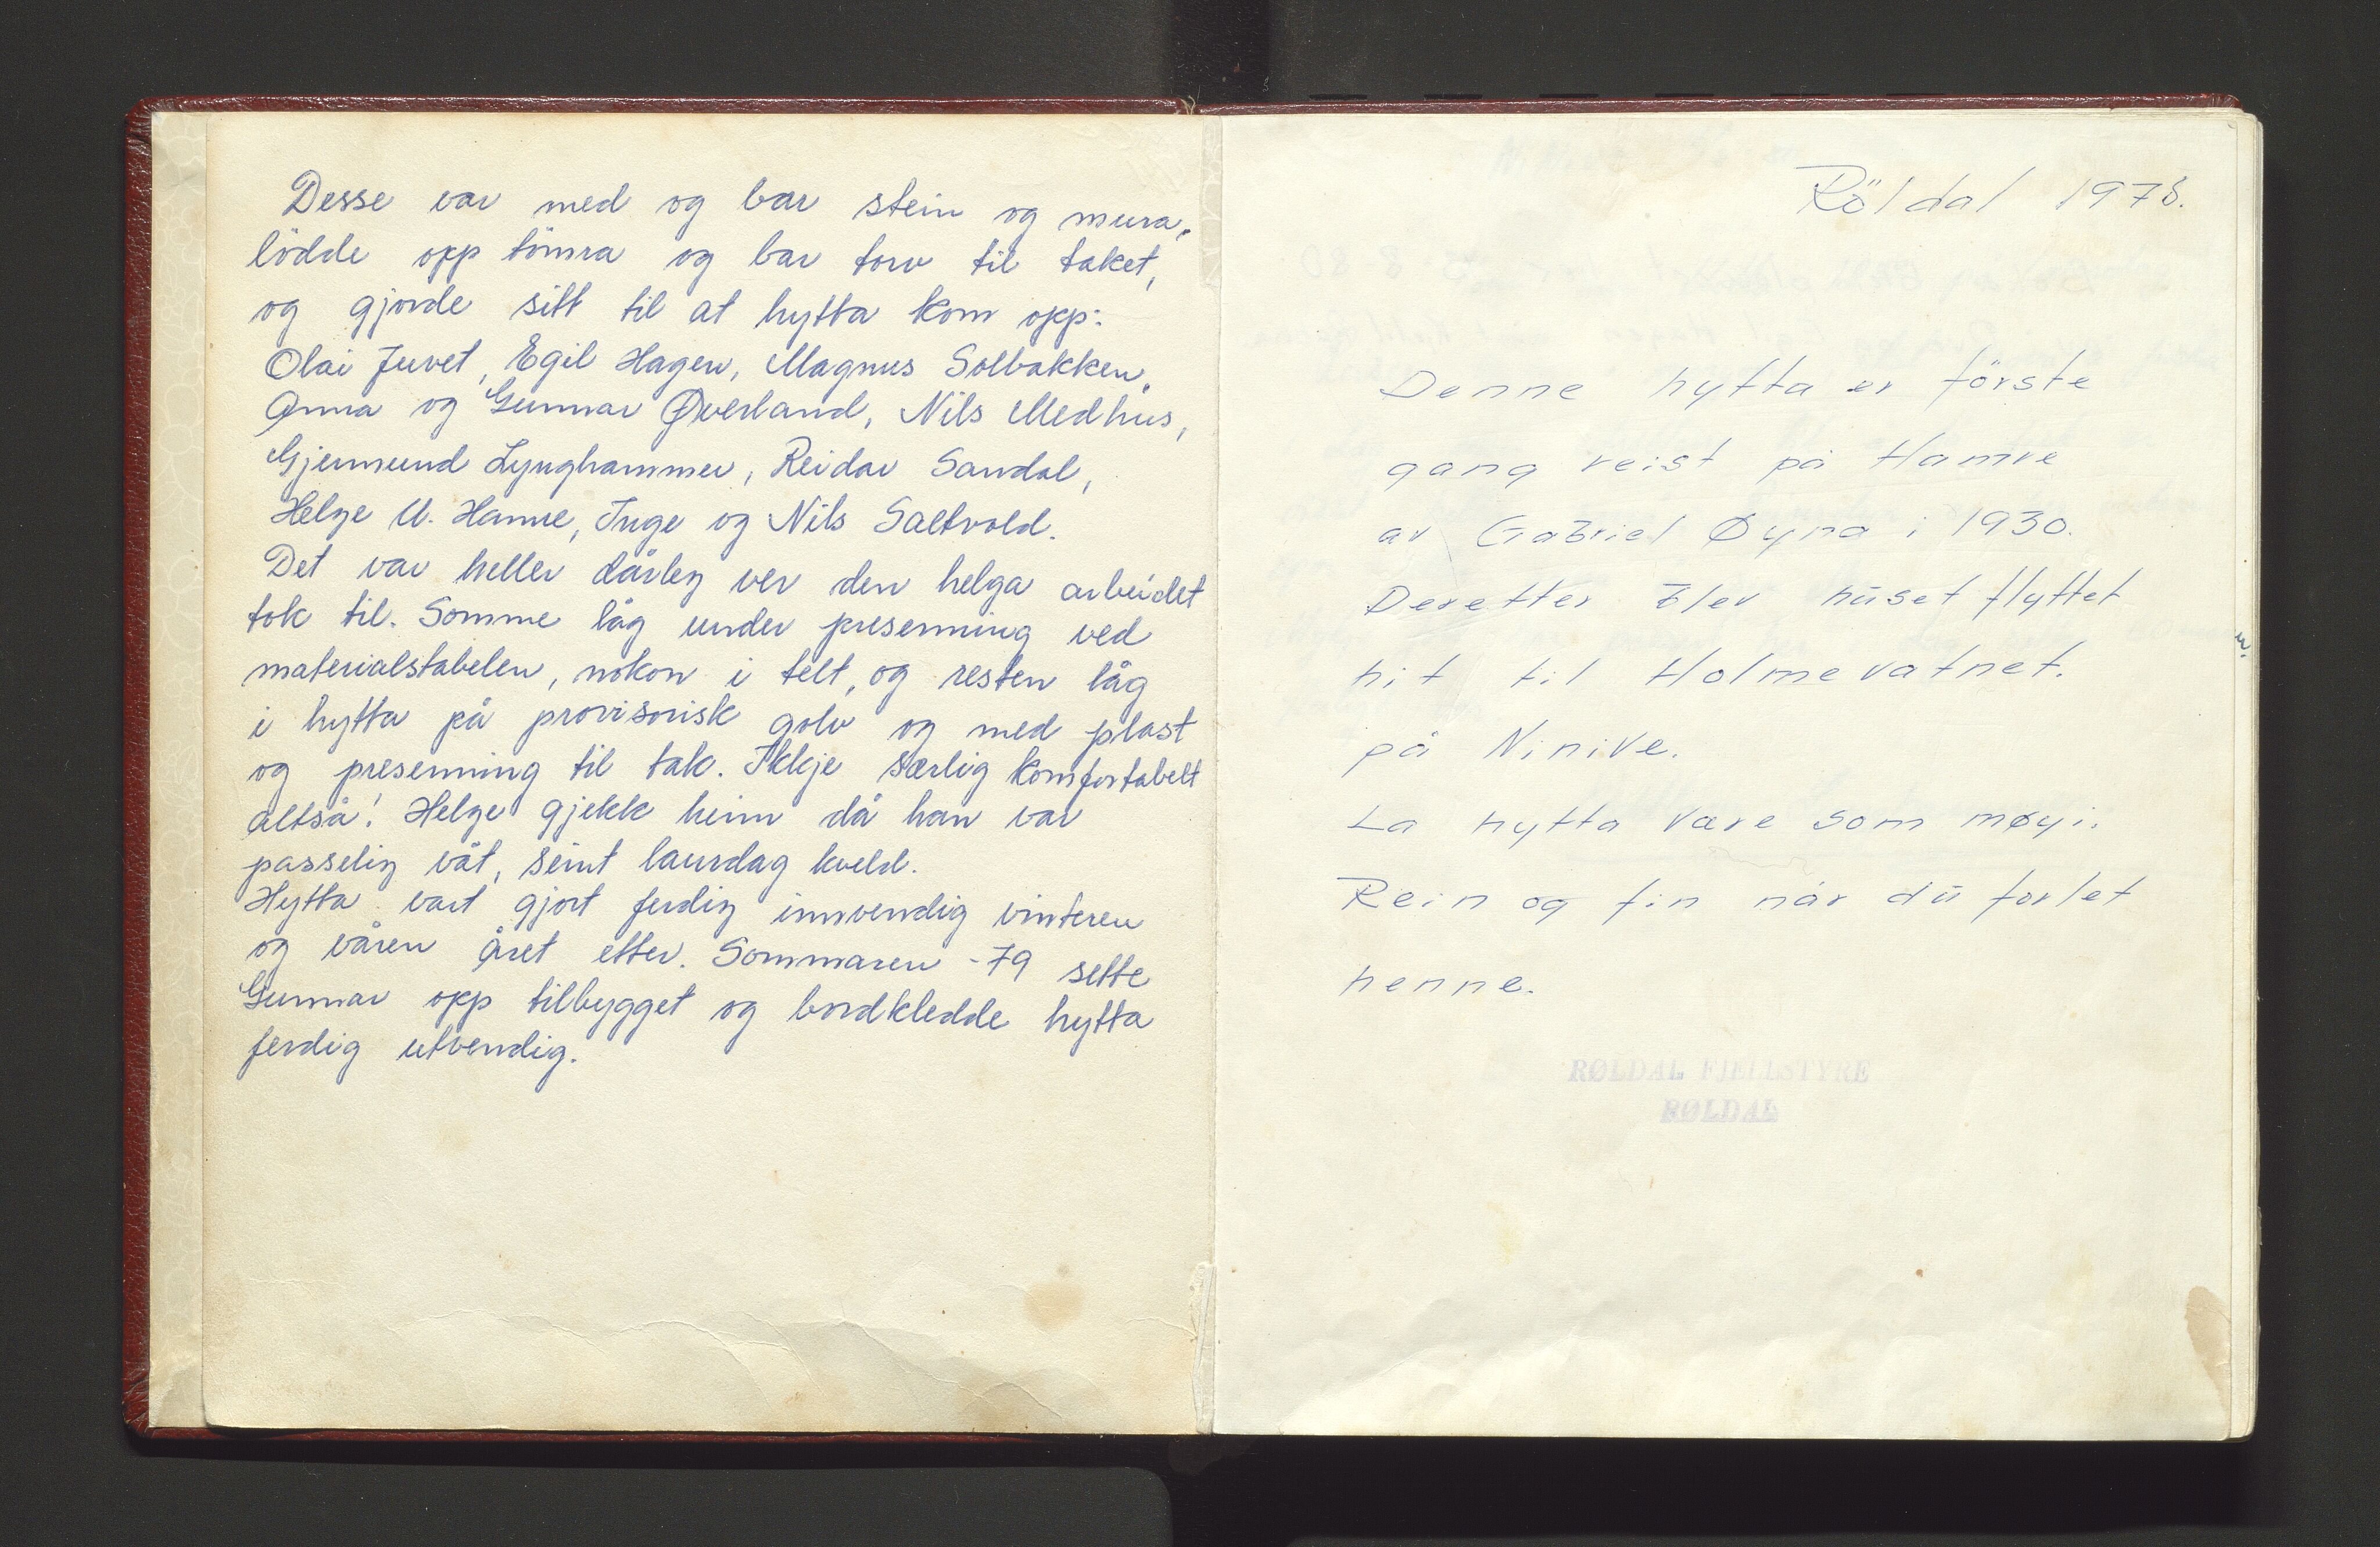 Desse var med og bar stein og mura,
lödde opp tömra og bar torv til taket,
og gjorde sitt til at hytta kom opp:
Olai Juvet, Egil Hagen, Magnus Solbakken,
Anna og Gunnar Øverland, Nils Medhus,
Gjermund Lynghammer, Reidar Sandal,
Helge U. Hamre, Inge og Nils Saltvold.
Det var heller dårleg ver den helga arbeidet
tok til. Somme låg under presenning ved
materialstabelen, nokon i telt, og resten låg
i hytta på provisorisk golv og med plast
og presenning til tak. Ikkje særlig komfortabelt
altså! Helge gjekk heim då han var
passelig våt, seint laurdag kveld.
Hytta vart gjort ferdig innvendig vinteren
og våren året etter. Sommaren -79 sette
Gunnar opp tilbygget og bordkledde hytta
ferdig utvendig.
Röldal 1978.
Denne hytta er förste
gang reist på Hamre
av Gabriel Øyna i 1930.
Deretter blev huset flyttet
hit til Holmevatnet.
på Ninive.
La hytta være som møyi.
Rein og fin når du forlet
henne.
RØLDAL FJELLSTYRE
RØLDAL